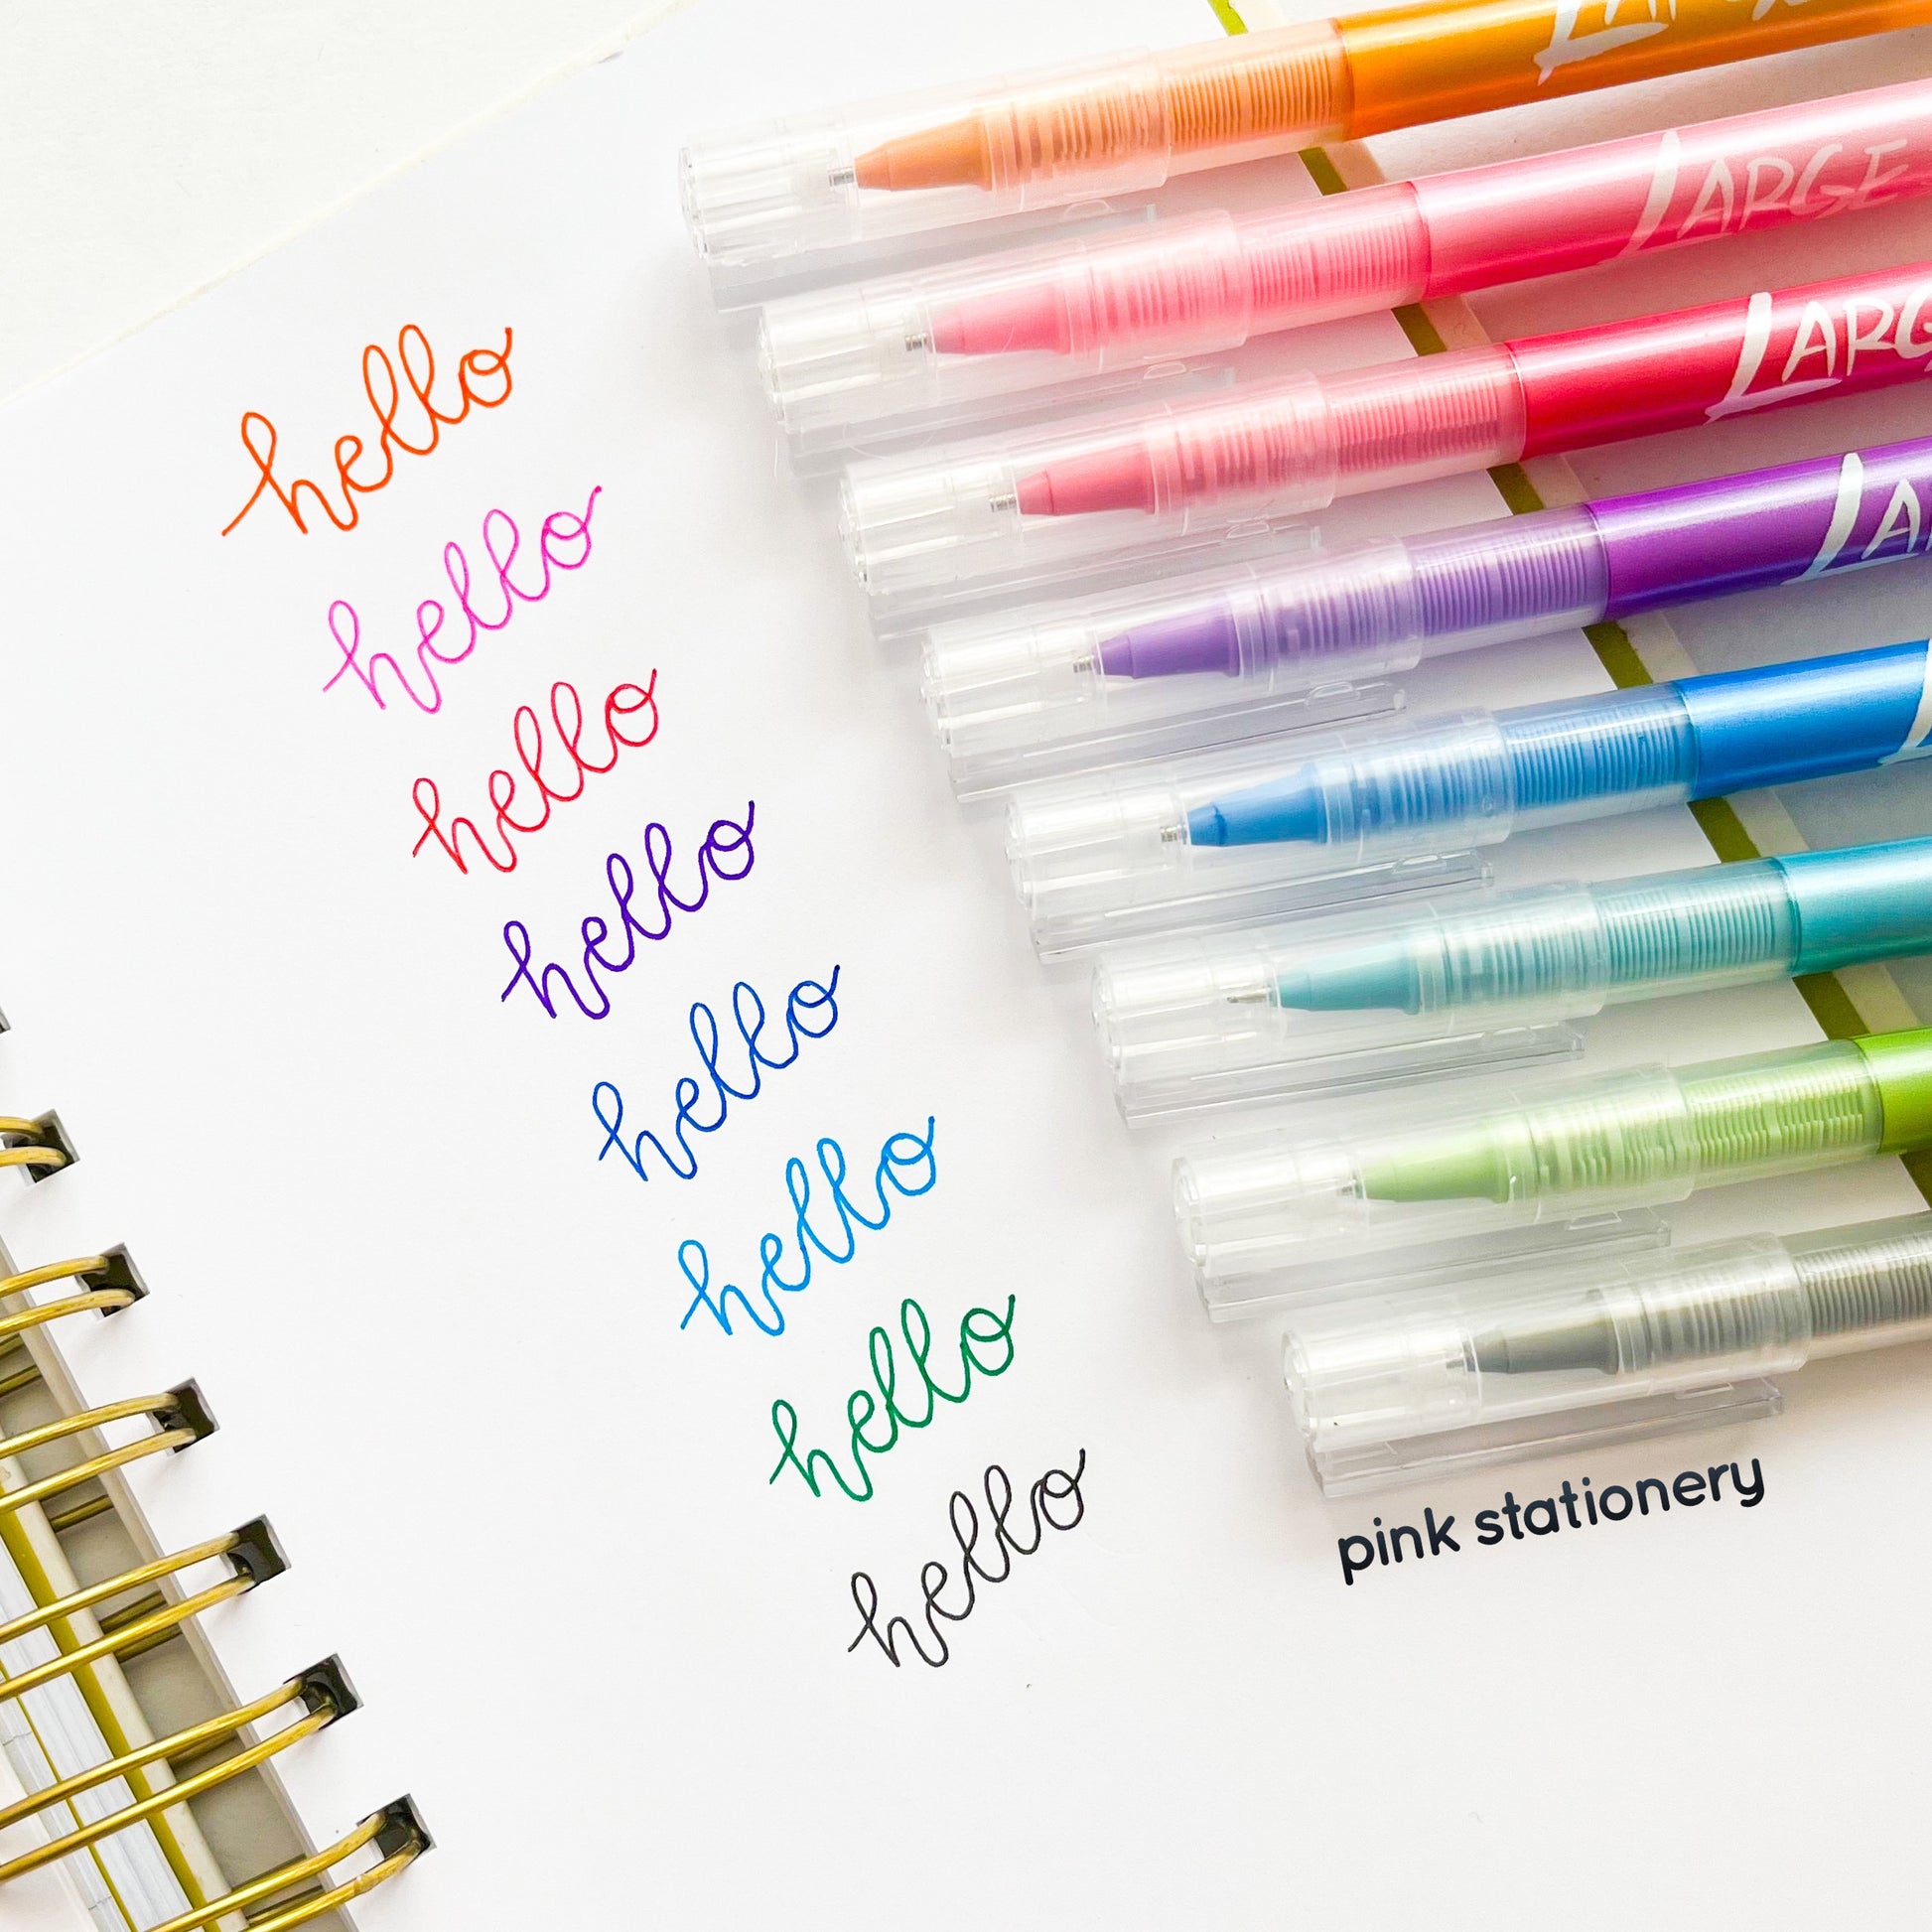 LARGE
LARGE
LARG
LA
hello
hello
hello
hello
hello
hello
hello
hello
pink stationery